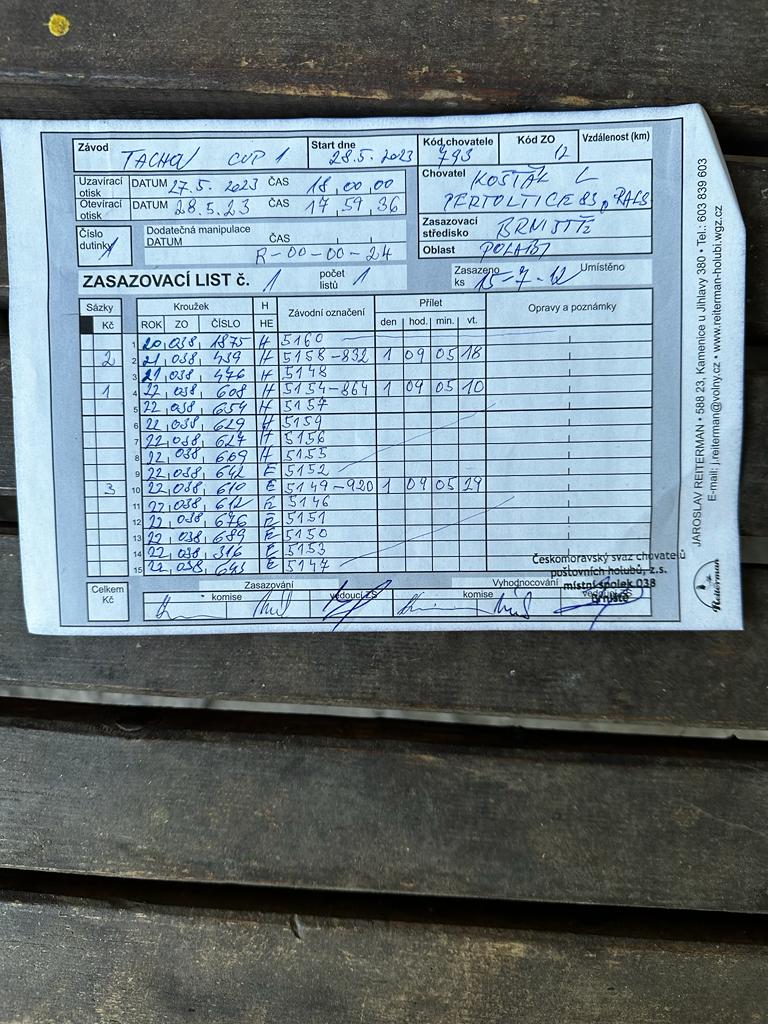 Závod TACHOV CUP 1 Start dne 28.5.2023 Kód chovatele 793 Kód ZO 12 Vzdálenost (km)
Uzavírací otisk DATUM 27.5.2023 ČAS 18 00 00
Otevírací otisk DATUM 28.5.23 ČAS 17 59 36
Chovatel KOŠŤÁL L
PERTOLTICE 83 p. RALS
Číslo dutinky 1 Dodatečná manipulace DATUM ČAS
R-00-00-24
Zasazovací středisko BRNIŠTĚ
Oblast POLABÍ
ZASAZOVACÍ LIST č. 1 počet listů 1 Zasazeno ks 15-7-12 Umístěno
Sázky Kroužek H Závodní označení Přílet Opravy a poznámky
Kč ROK ZO ČÍSLO HE den hod. min. vt.
1 20 038 1875 H 5160
2 2 21 038 439 H 5158-832 1 09 05 18
3 21 038 476 H 5148
1 4 22 038 608 H 5154-864 1 09 05 10
5 22 038 654 H 5157
6 22 038 629 H 5159
7 22 038 627 H 5156
8 22 038 669 H 5155
9 22 038 642 E 5152
3 10 22 038 610 E 5149-920 1 09 05 29
11 22 038 612 E 5146
12 22 038 676 E 5151
13 22 038 689 E 5150
14 22 038 316 E 5153
15 22 038 643 E 5147
Celkem Kč Zasazování Vyhodnocování
komise vedoucí ZS komise vedoucí ZS
Českomoravský svaz chovatelů
poštovních holubů, z.s.
místní spolek 038
Brniště
JAROSLAV REITERMAN • 588 23, Kamenice u Jihlavy 380 • Tel.: 603 839 603
E-mail: j.reiterman@volny.cz • www.reiterman-holubi.wgz.cz
Reiterman